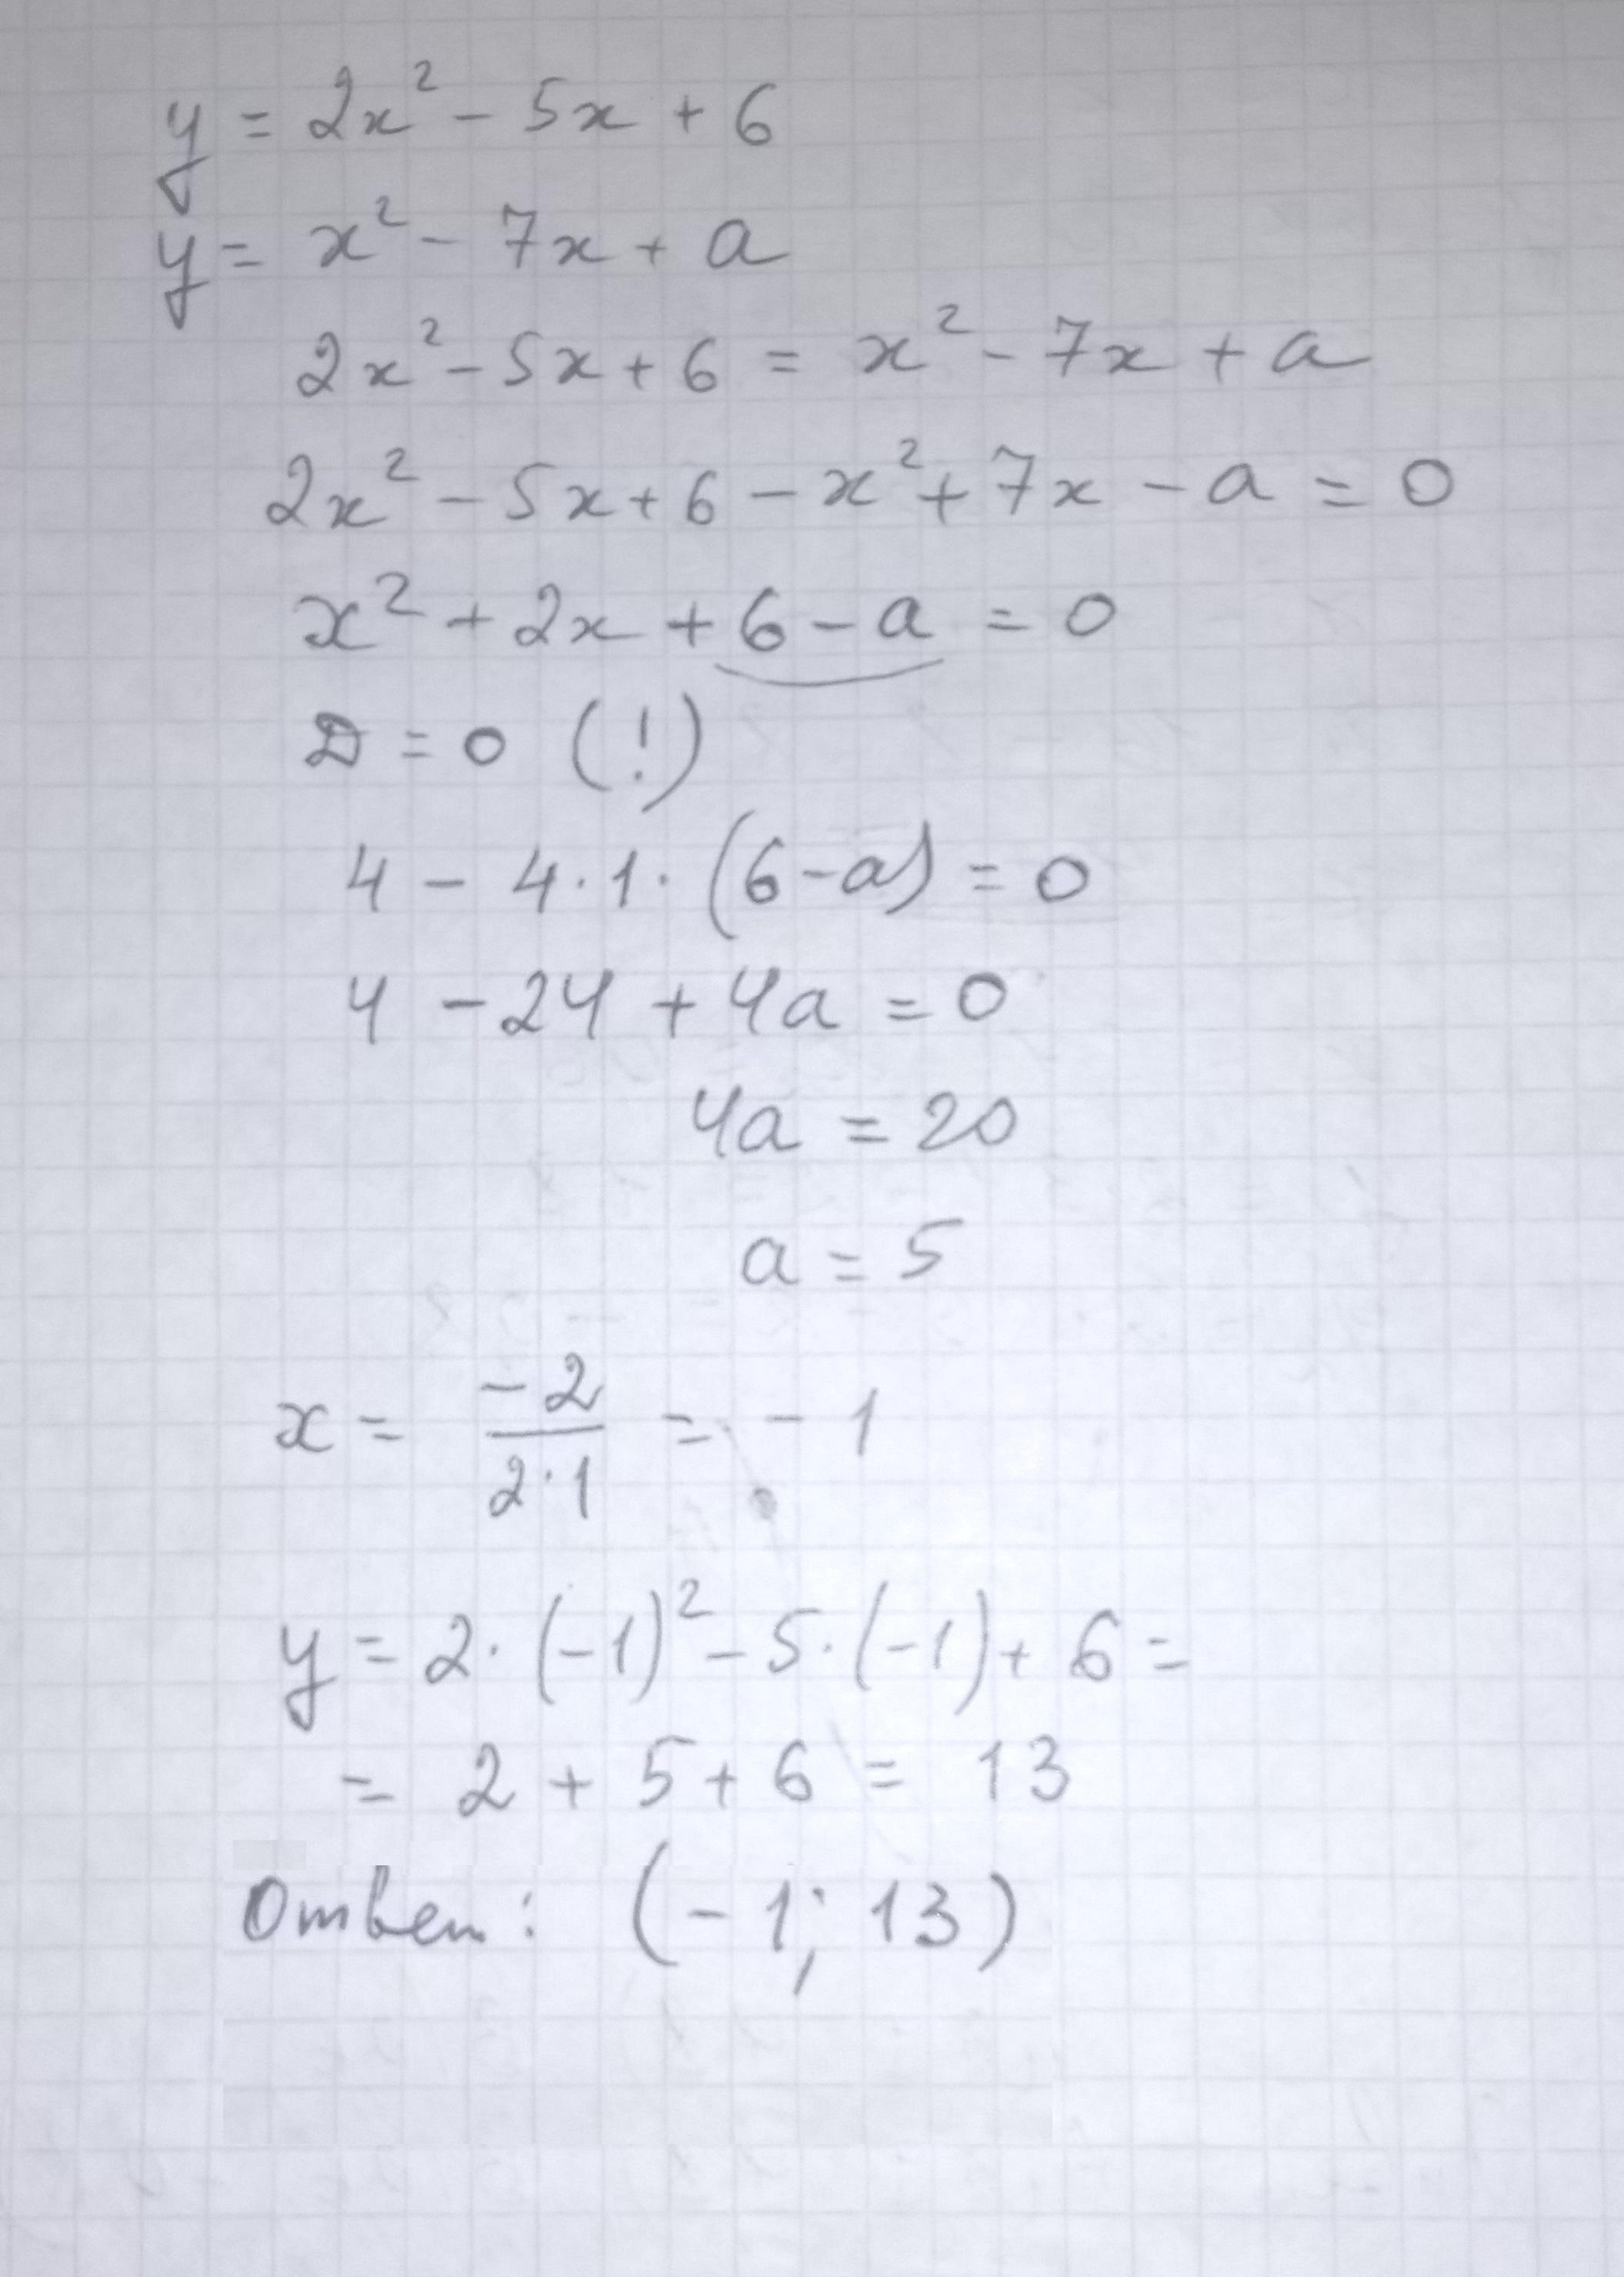 y = 2x² - 5x + 6
y = x² - 7x + a
2x² - 5x + 6 = x² - 7x + a
2x² - 5x + 6 - x² + 7x - a = 0
x² + 2x + 6 - a = 0
D = 0 (!)
4 - 4 · 1 · (6 - a) = 0
4 - 24 + 4a = 0
4a = 20
a = 5
x = -2/(2·1) = -1
y = 2 · (-1)² - 5 · (-1) + 6 =
= 2 + 5 + 6 = 13
Ответ: (-1; 13)